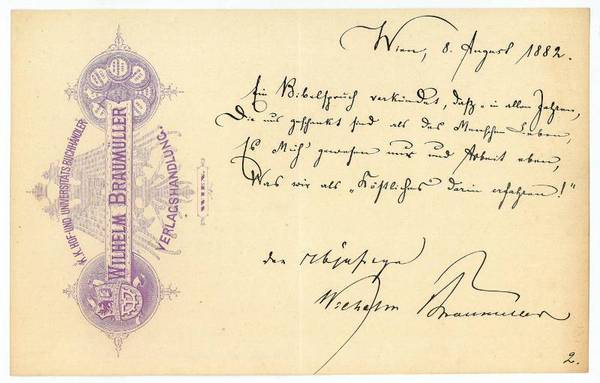 K.K. HOF- UND UNIVERSITÄTS BUCHHÄNDLER
WILHELM BRAUMÜLLER
VERLAGSHANDLUNG.
WIEN.
Wien, 8. August 1882.
Ein Bibelspruch verkündet, daß „in allen Jahren,
Die uns geschenkt sind als das Menschen Leben,
Es Müh' gewesen nur und Arbeit eben,
Was wir als „Köstliches" darin erfahren!"
der
Wilhelm Braumüller
2.